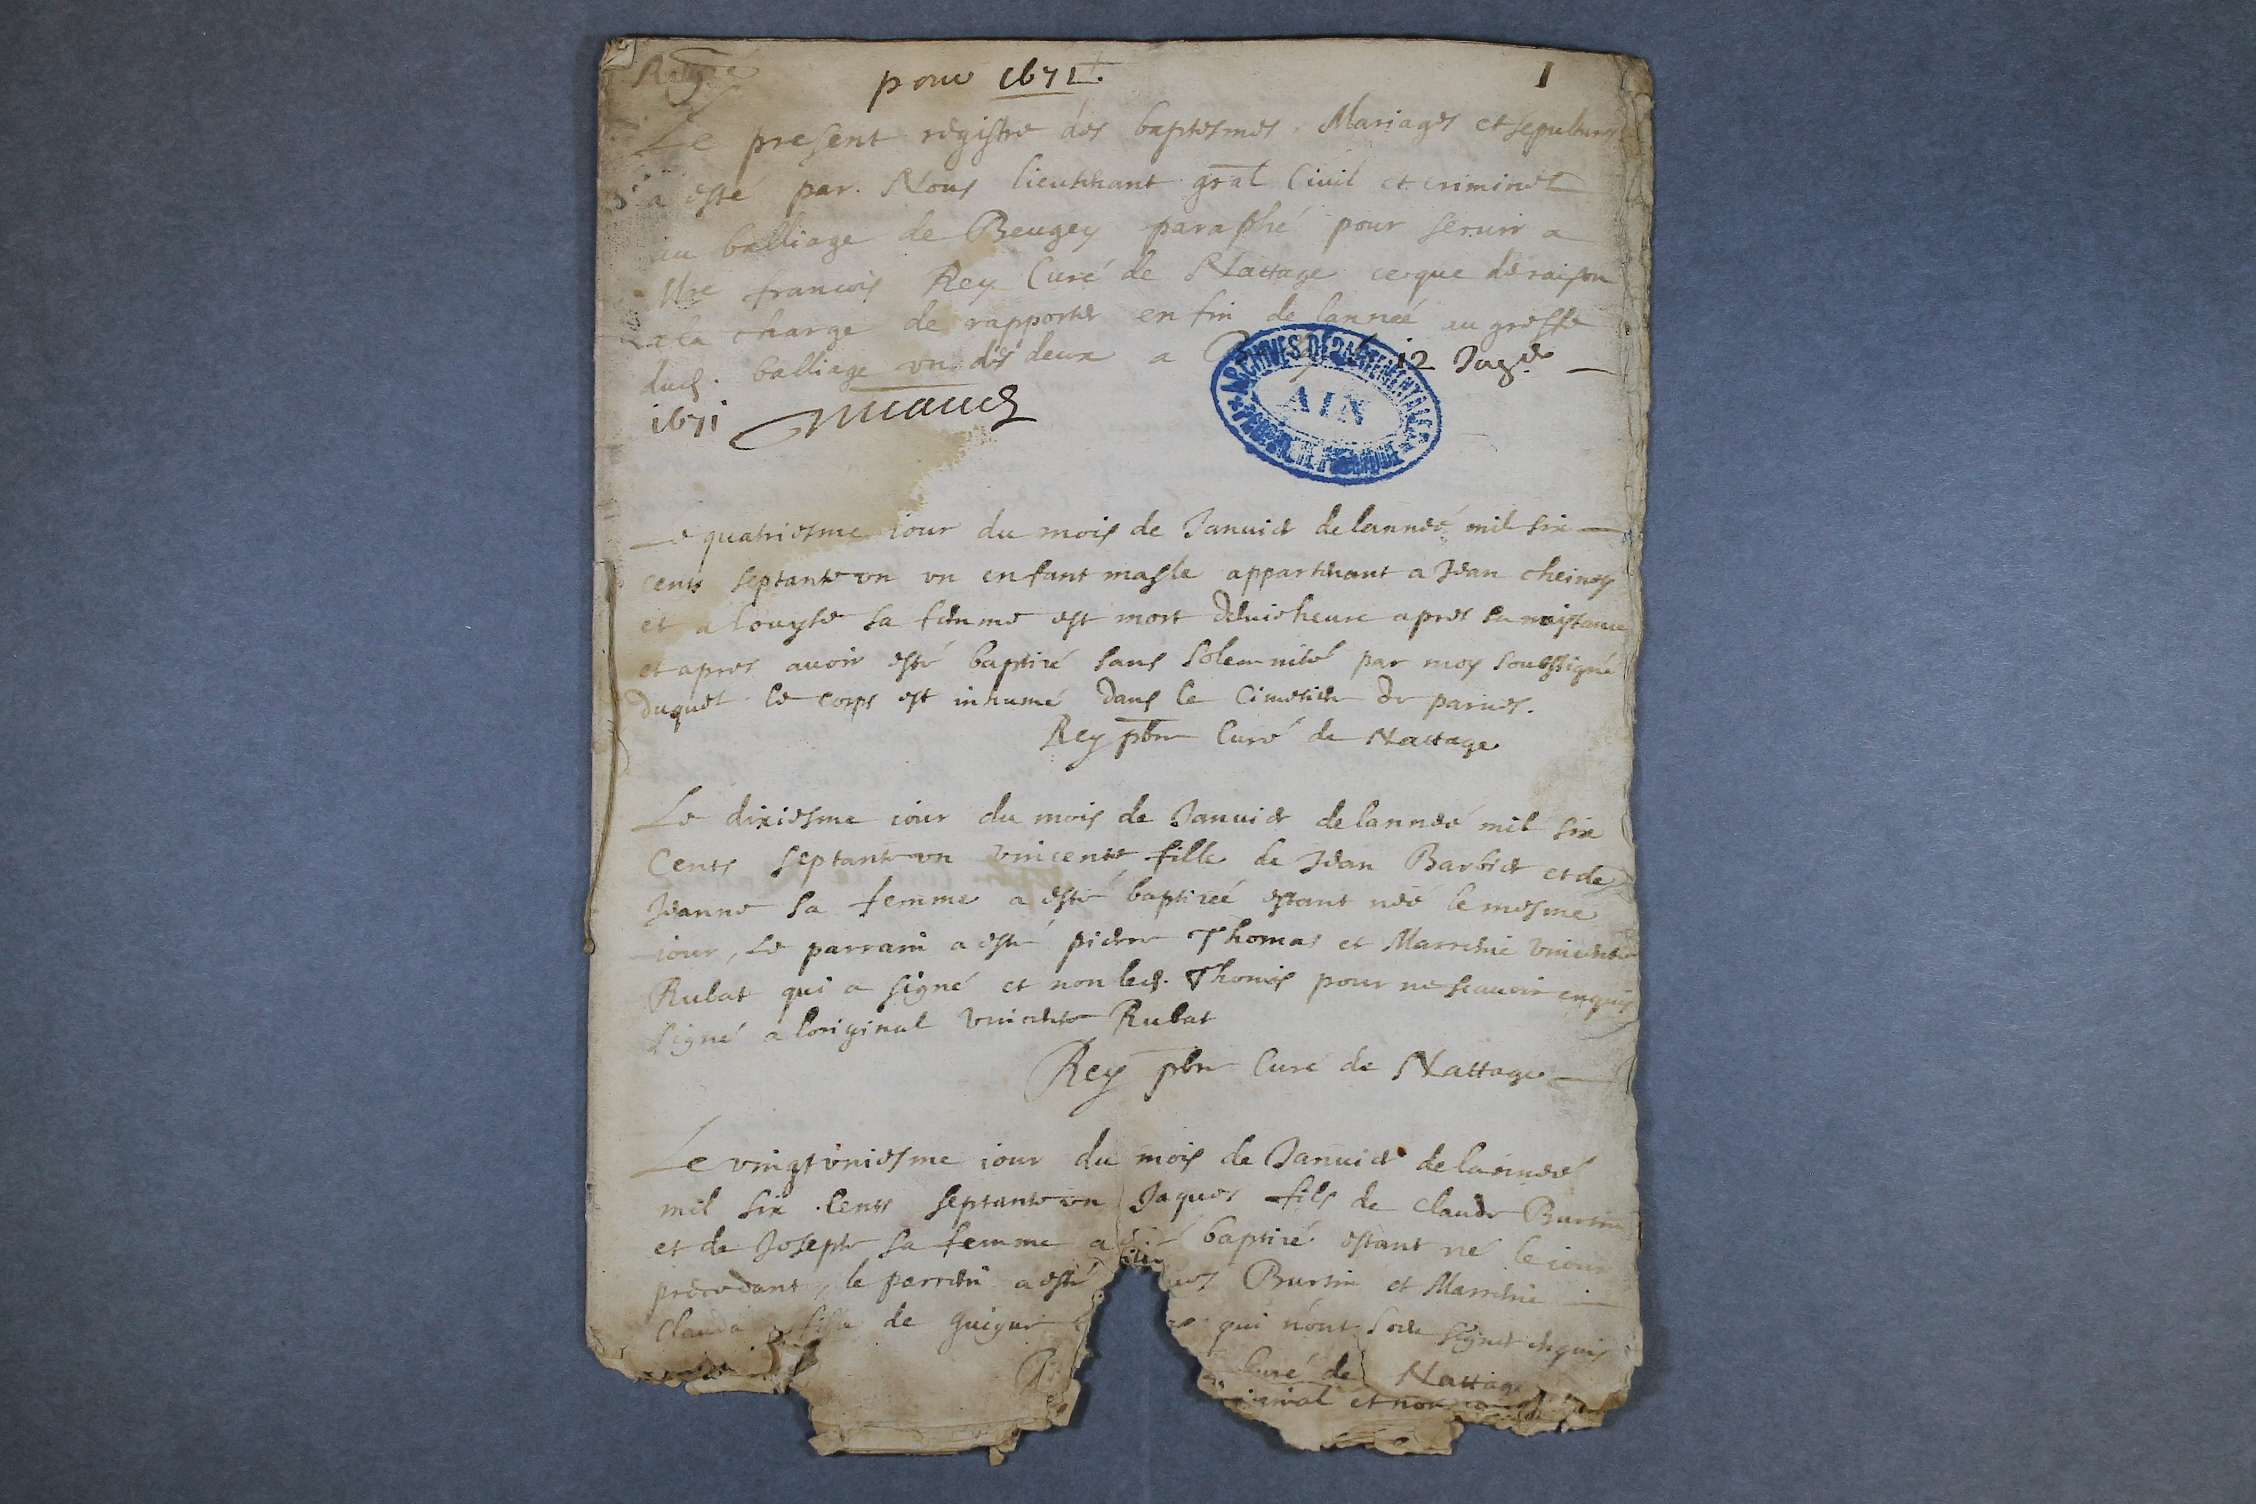 pour 1671. 1
Le present registre des baptesmes, Mariages et sepultures
a esté par Nous lieutenant gral Civil et criminel
au balliage de Beugey paraphé pour servir a
Mre francois Rey Curé de Nattage ce que de raison
a la charge de rapporter en fin de lannée au greffe
dud. balliage un des deux a 12
1671
ARCHIVES DÉPARTEMENTALES AIN
Le quatriesme iour du mois de Januier de lannée mil six
cents septante vn vn enfant masle appartenant a Jean cheiney
et a louyse sa femme est mort demie heure apres sa naissance
et apres auoir esté baptizé sans solemnité par moy soubsigné
duquel le corps est inhumé dans le Cimetiere de parues.
Rey pbre Curé de Nattage
Le dixiesme iour du mois de Januier de lannée mil six
Cents septante vn vincente fille de Jean Barbier et de
Jeanne sa femme a esté baptizéé estant néé le mesme
iour, Le parrain a esté pierre Thomas et Marreine vincente
Rubat qui a signé et non led. Thomas pour ne scauoir enquis
signé a loriginal vincente Rubat
Rey pbre Curé de Nattage
Le vingt vniesme iour du mois de Januier de lannéé
mil six Cents septante vn Jaques fils de claude Burtin
et de Josepte sa femme a esté baptizé estant né le iour
precedant, le parrein a esté Burtin et Marreine
Clauda fille de guigue qui n'ont sceu signer enquis
Curé de Nattage
et non